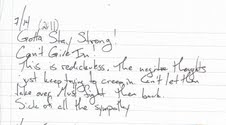 7/14 (2011)
Gotta Stay Strong!
Can't Give In
This is redickuless. The negative thoughts
just keep trying to creep in can't let them
take over. Must fight them back.
Sick of all the sympathy